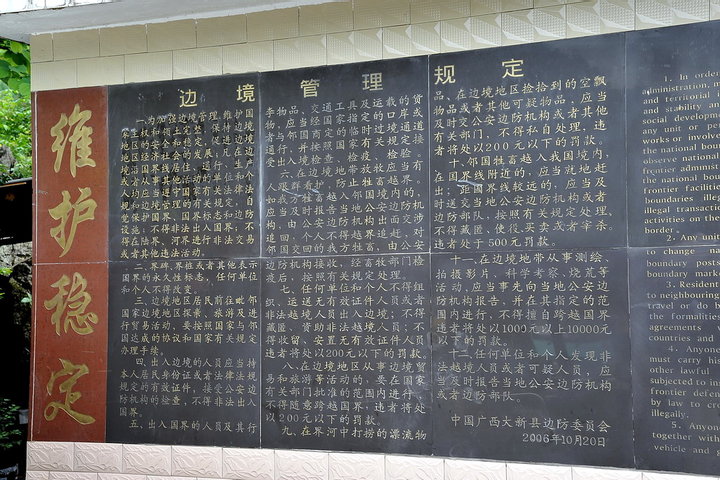 维护稳定
边境管理规定
一、为加强边境管理,维护国
家主权和领土完整,保持边境
地区的安全和稳定,促进边境
地区经济社会的发展;凡在边
境沿国界线居住、通行、生产
或者从事其他活动的单位和个
人均应当遵守国家有关法律法
规和边境管理的有关规定,自
觉保护国界、国界标志和边防
设施;不得非法出入国界;不
得在陆界、河界进行非法交易
或者其他违法活动。
二、界碑、界桩或者其他表示
国界的永久性标志,任何单位
和个人不得改变。
三、边境地区居民前往毗邻
国家边境地区探亲、旅游及进
行贸易活动,要按照国家与邻
国达成的协议和国家有关规定
办理手续。
四、出入边境的人员应当持
本人居民身份证或者法律法规
规定的有效证件,接受公安边
防机构的检查,不得非法出入
国界。
五、出入国界的人员及其行
李物品、交通工具及运载的货
物,应当经国家指定的口岸或
者与邻国商定的临时过境通道
通行,并按照国家有关规定,接
受出入境检查、检疫、检验。
六、在边境地带放牧应当有
人跟群看护,防止牲畜越界。
如我方牲畜越入邻国境内的,
应当及时报告当地公安边防机
构,由公安边防机构出面交涉
追回,个人不得越界追赶,对
邻国交回的我方牲畜,由公安
边防机构接收,经畜牧部门检
疫后,按照有关规定处理。
七、任何单位和个人不得组
织、运送无有效证件人员或者
非法越境人员出入边境;不得
藏匿、资助非法越境人员;不
得收留、安置无有效证件人员
违者将处以200元以下的罚款。
八、在边境地区从事边境贸
易和旅游等活动的,要在国家
有关部门批准的范围内进行,
不得随意跨越国界,违者将处
以200元以下的罚款。
九、在界河中打捞的漂流物
品、在边境地区捡拾到的空飘
物品或者其他可疑物品,应当
及时交当公安边防机构或者其他
有关部门,不得私自处理,违
者将处以200元以下的罚款。
十、邻国牲畜越入我国境内,
在国界线附近的,应当就地赶
出;距国界线较远的,应当及
时送交当地公安边防机构或者
边防部队,按照有关规定处理、
不得藏匿、使役、买卖或者宰杀。
违者处于500元罚款。
十一、在边境地带从事测绘、
拍摄影片、科学考察、烧荒等
活动,应当事先向当地公安边
防机构报告,并在其指定的范
围内进行,不得擅自跨越国界
违者将处以1000元以上10000元
以下的罚款。
十二、任何单位和个人发现非
法越境人员或者可疑人员,应
当及时报告当地公安边防机构
或者边防部队。
中国广西大新县边防委员会
2006年10月20日
1. In order
administration, m
and territorial i
and stability a
social developme
any unit or pe
works or involve
the national boun
observe national
frontier administ
the national bo
frontier faciliti
boundaries illega
illegal transactio
activities on th
border.
2. Any unit
to change na
boundary posts
boundary mark
3. Resident
to neighboring
travel or do b
the formalities
agreements
countries and
4. Anyone
must carry his
other lawful
subjected to in
frontier defen
by law to cro
illegally.
5. Anyon
together with
vehicle and g